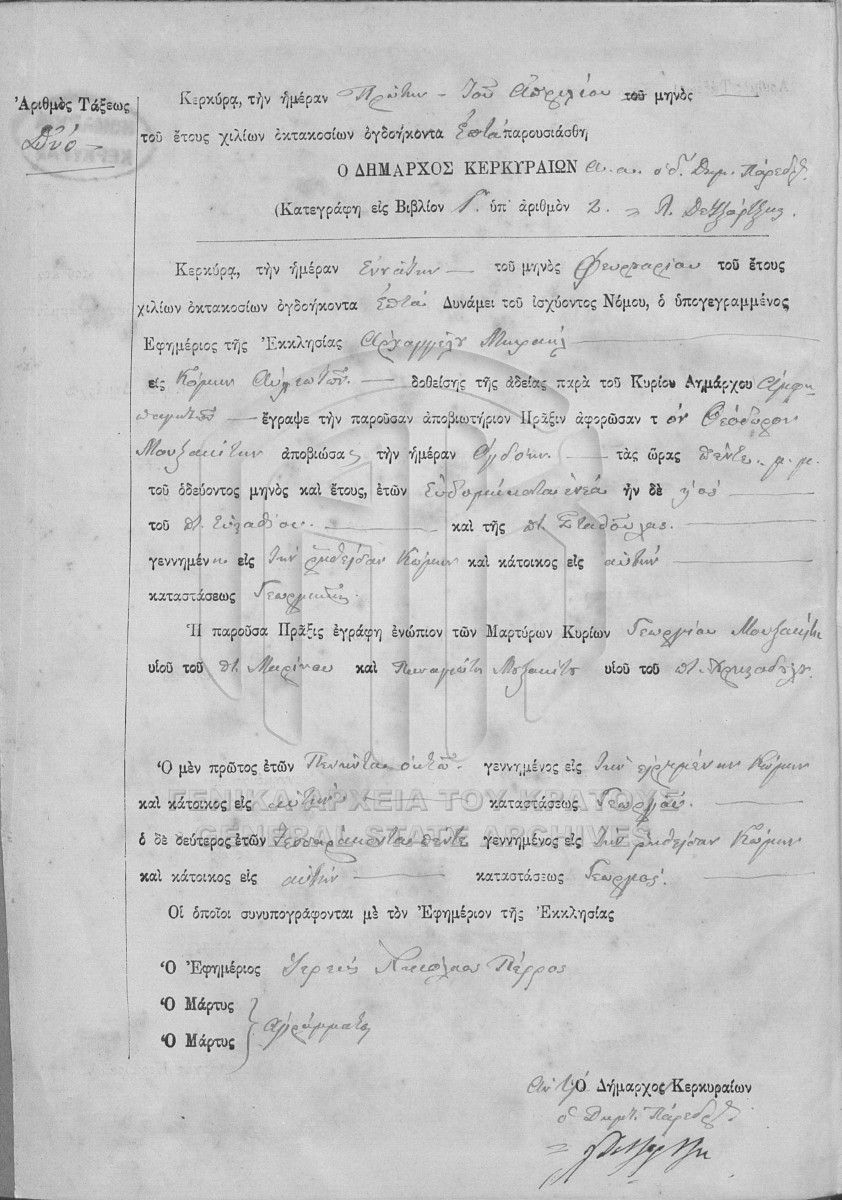 Ἀριθμὸς Τάξεως
Δύο
Κερκύρᾳ, τὴν ἡμέραν Πρώτην τοῦ Ἀπριλίου τοῦ μηνὸς
τοῦ ἔτους χιλίων ὀκτακοσίων ὀγδοήκοντα ἑπτά παρουσιάσθη
Ὁ ΔΗΜΑΡΧΟΣ ΚΕΡΚΥΡΑΙΩΝ ὁ Δημ. Πάρεδρ.
(Κατεγράφη εἰς Βιβλίον Γ. ὑπ' ἀριθμὸν 2.
Κερκύρᾳ, τὴν ἡμέραν ἐννάτην τοῦ μηνὸς Φευρουαρίου τοῦ ἔτους
χιλίων ὀκτακοσίων ὀγδοήκοντα ἑπτά Δυνάμει τοῦ ἰσχύοντος Νόμου, ὁ ὑπογεγραμμένος
Ἐφημέριος τῆς Ἐκκλησίας Ἀρχαγγέλου Μιχαὴλ
εἰς Κώμην Αὐλιωτῶν δοθείσης τῆς ἀδείας παρὰ τοῦ Κυρίου Δημάρχου
ἔγραψε τὴν παροῦσαν ἀποβιωτήριον Πρᾶξιν ἀφορῶσαν τὸν Θεόδωρον
Μουζακίτην ἀποβιώσας τὴν ἡμέραν Ὀγδόην τὰς ὥρας πέντε μ.μ.
τοῦ ὁδεύοντος μηνὸς καὶ ἔτους, ἐτῶν ἑβδομήκοντα ἐνέα ἦν δὲ υἱὸς
τοῦ π. καὶ τῆς π. Σταθούλας
γεννημένη εἰς τὴν ῥηθεῖσαν Κώμην καὶ κάτοικος εἰς αὐτήν
καταστάσεως Γεωργικῆς
Ἡ παροῦσα Πρᾶξις ἐγράφη ἐνώπιον τῶν Μαρτύρων Κυρίων Γεωργίου Μουζακίτη
υἱοῦ τοῦ π. Μαρίνου καὶ Παναγιώτη Μουζακίτη υἱοῦ τοῦ π.
Ὁ μὲν πρῶτος ἐτῶν Πενῆντα ὀκτώ γεννημένος εἰς τὴν εἰρημένην Κώμην
καὶ κάτοικος εἰς αὐτήν καταστάσεως Γεωργός
ΓΕΝΙΚΑ ΑΡΧΕΙΑ ΤΟΥ ΚΡΑΤΟΥΣ
GENERAL STATE ARCHIVES
ὁ δὲ δεύτερος ἐτῶν τεσσαράκοντα πέντε γεννημένος εἰς τὴν ῥηθεῖσαν Κώμην
καὶ κάτοικος εἰς αὐτήν καταστάσεως Γεωργός
Οἱ ὁποῖοι συνυπογράφονται μὲ τὸν Ἐφημέριον τῆς Ἐκκλησίας
Ὁ Ἐφημέριος Ἱερεὺς Νικόλαος Πέρρος
Ὁ Μάρτυς
Ὁ Μάρτυς
Ἀγράμματοι
Ὁ Δήμαρχος Κερκυραίων
ὁ Δημ. Πάρεδρ.